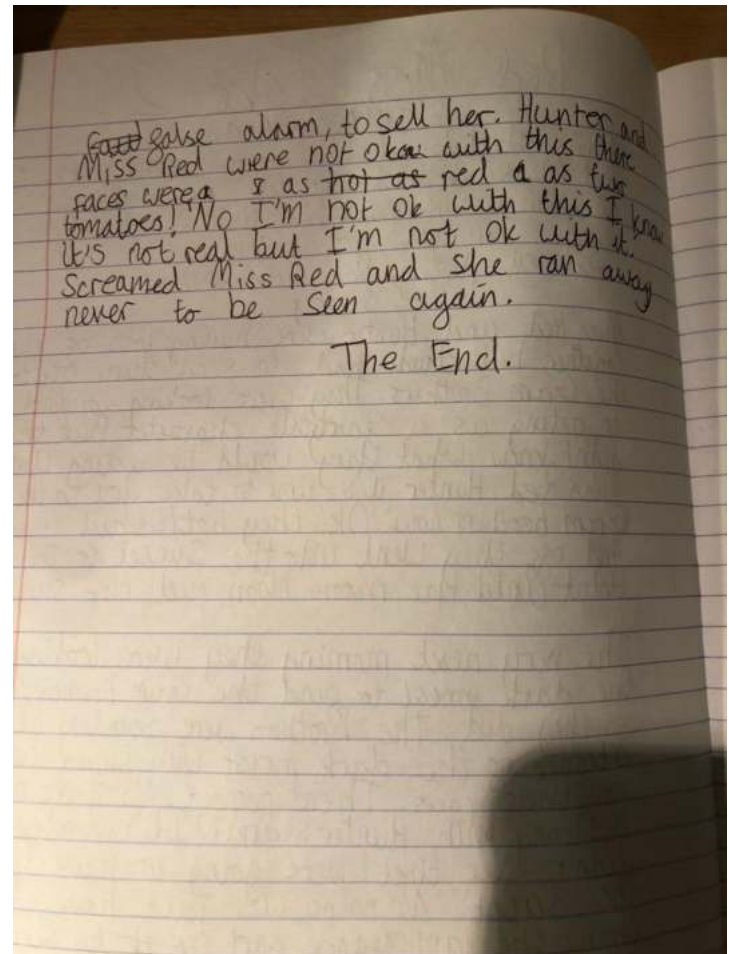 false alarm, to sell her. Hunter and
Miss Red were not okay with this there
faces were as red as two
tomatoes! No I'm not ok with this I know
it's not real but I'm not ok with it.
Screamed Miss Red and she ran away
never to be seen again.
The End.